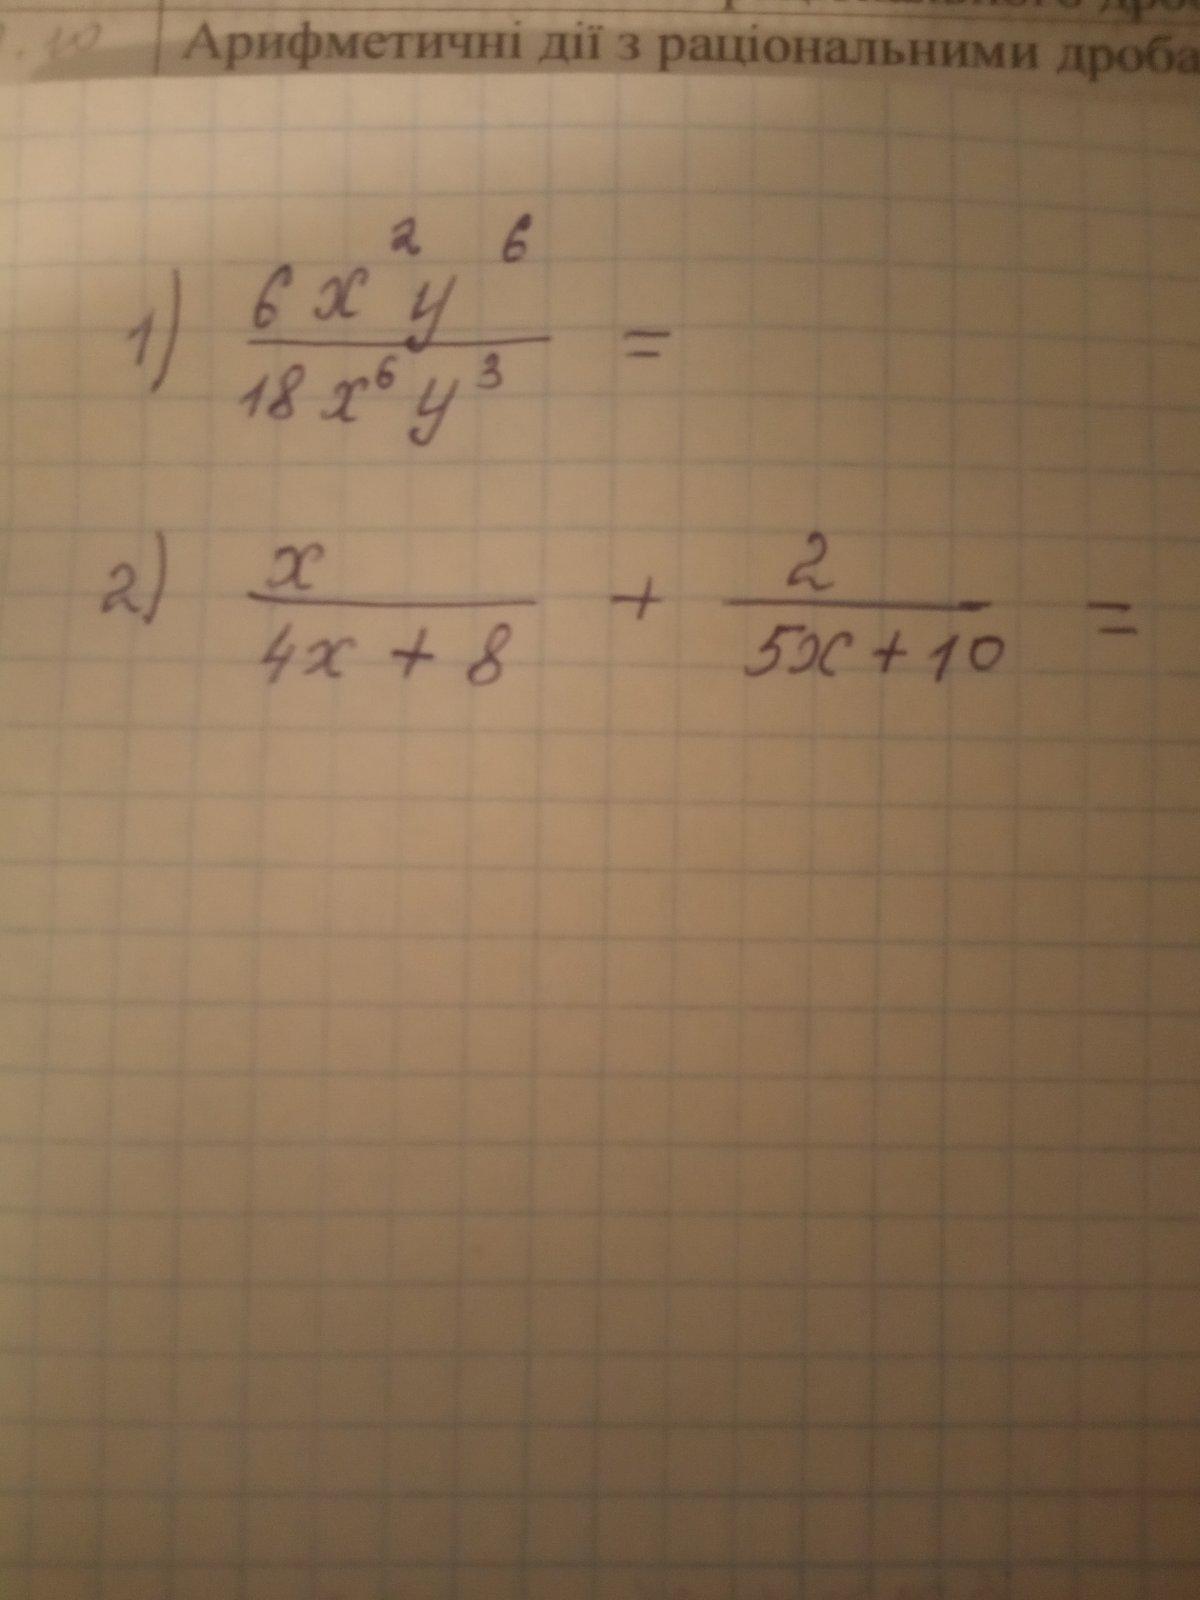 Арифметичні дії з раціональними
1) 6x²y⁶ / 18x⁶y³ =
2) x / 4x + 8 + 2 / 5x + 10 =